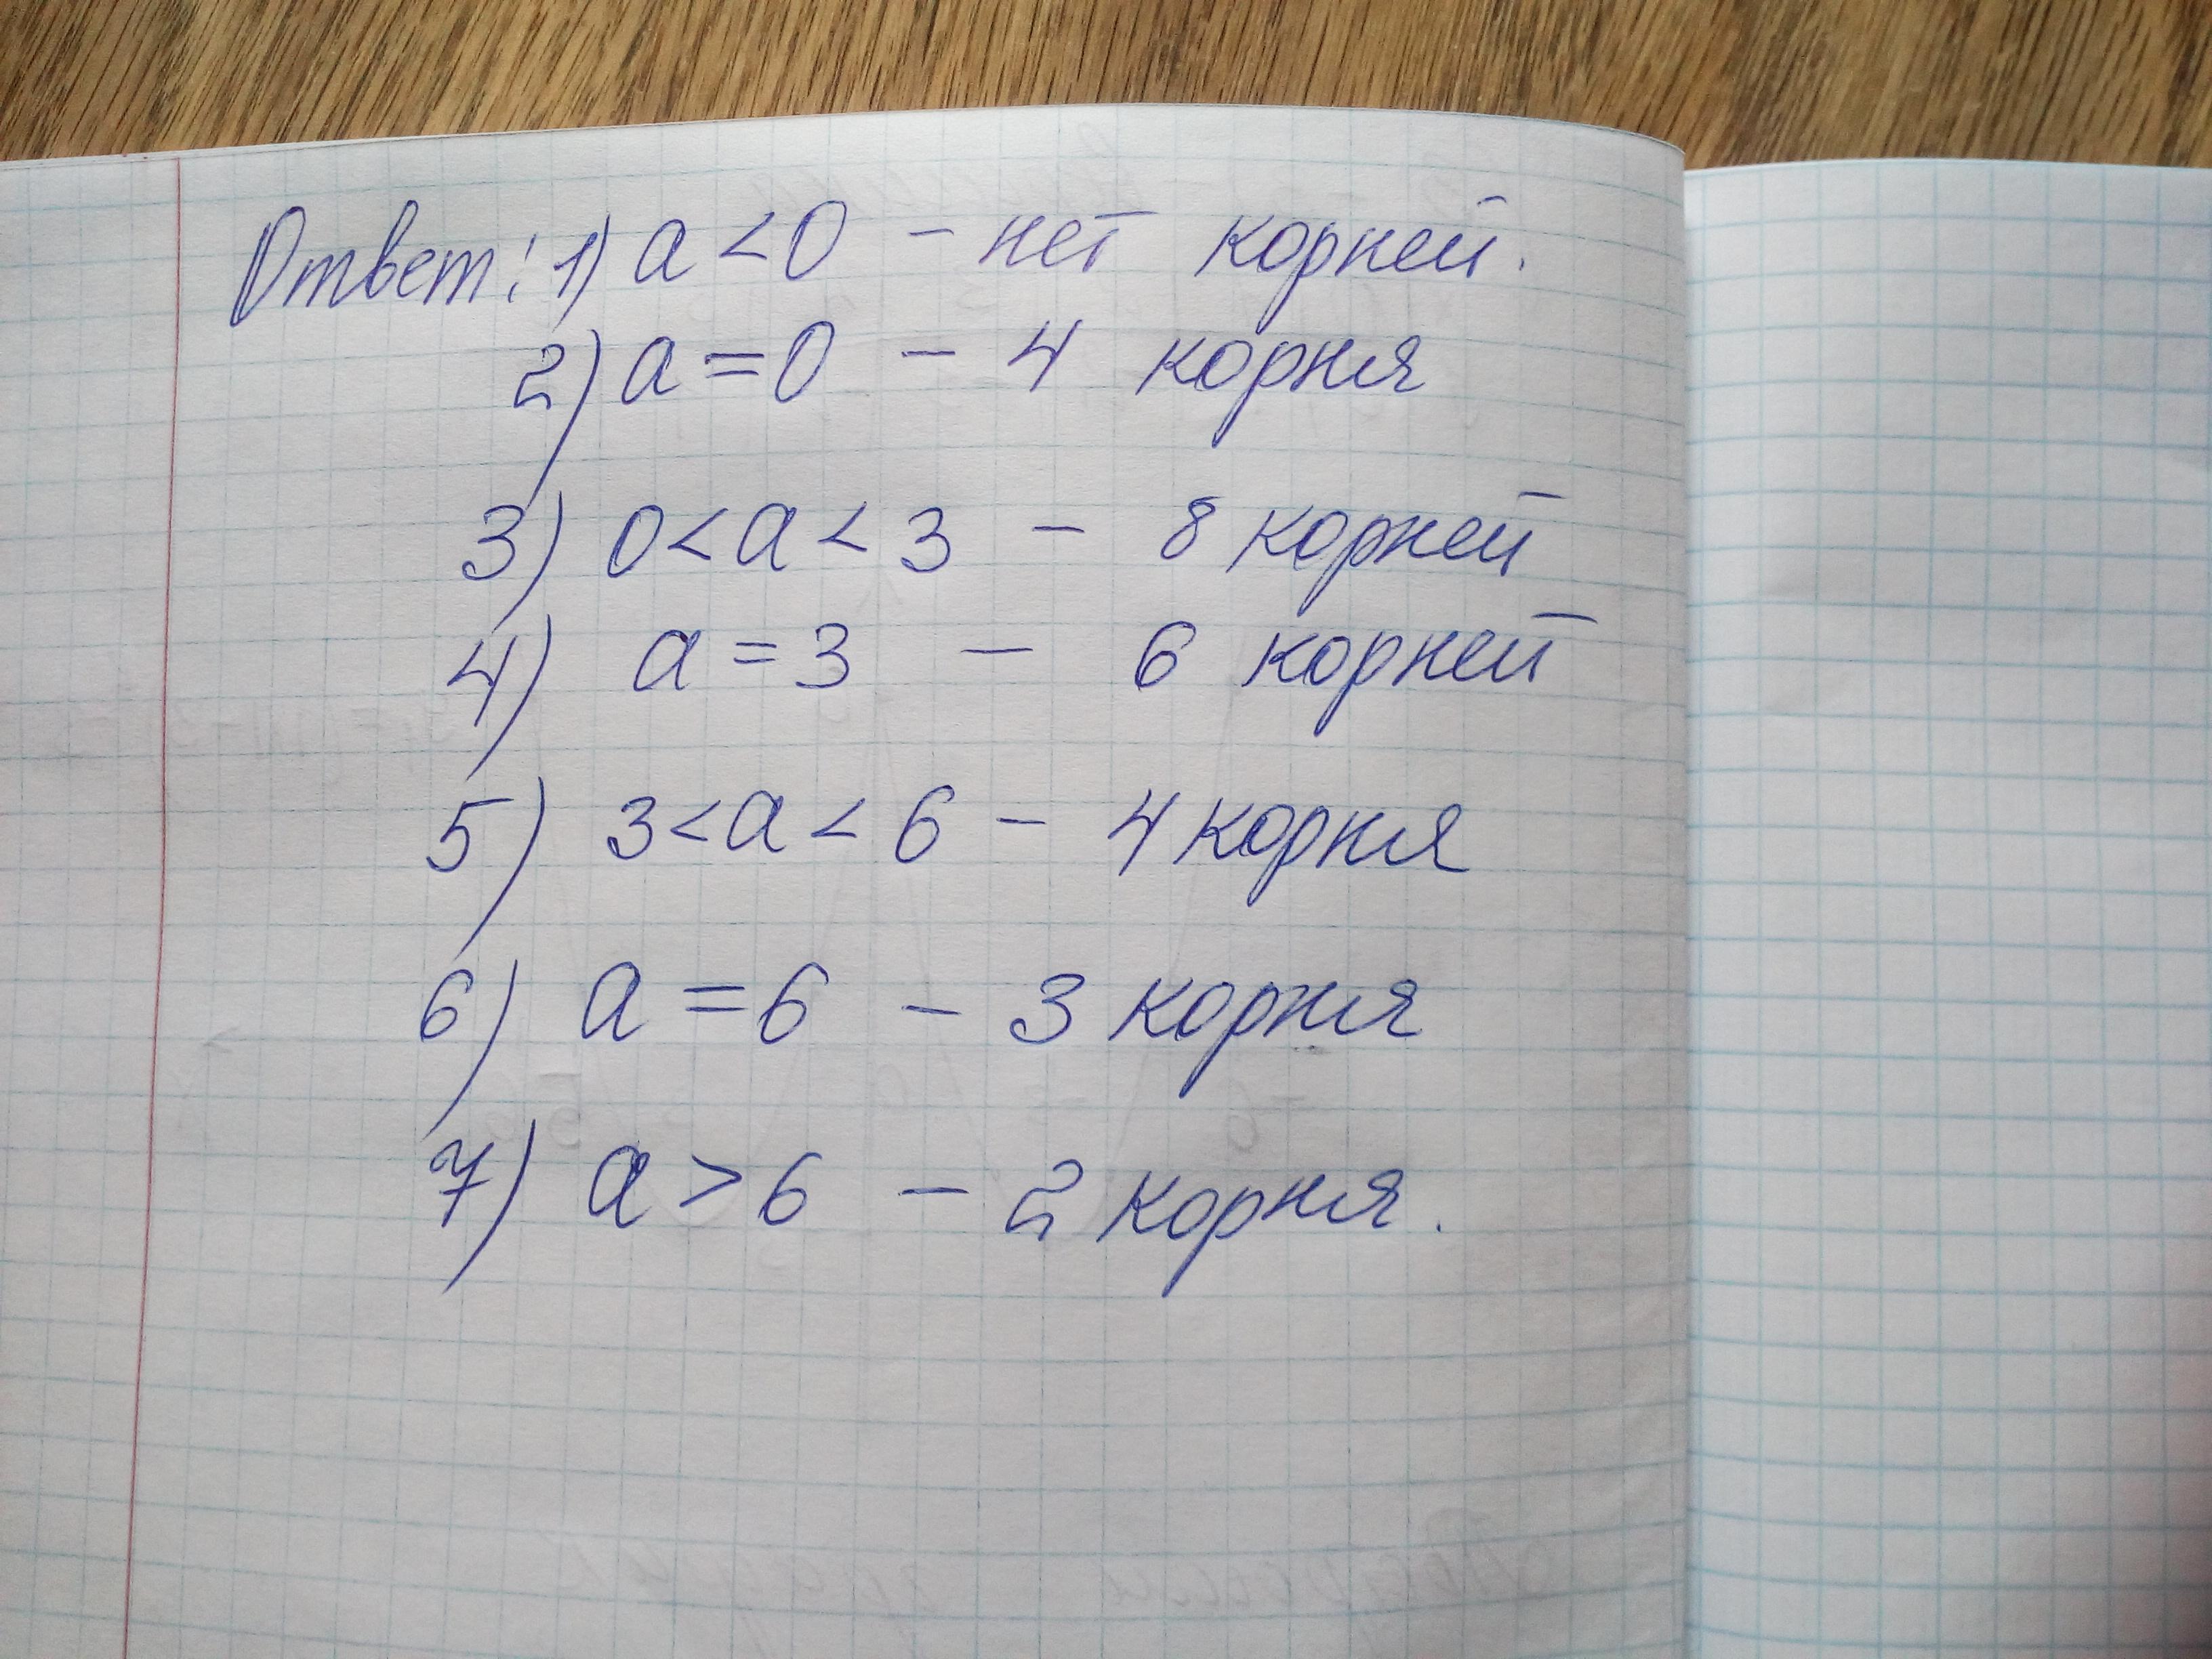 Ответ: 1) a < 0 - нет корней.
2) a = 0 - 4 корня
3) 0 < a < 3 - 8 корней
4) a = 3 - 6 корней
5) 3 < a < 6 - 4 корня
6) a = 6 - 3 корня
7) a > 6 - 2 корня.